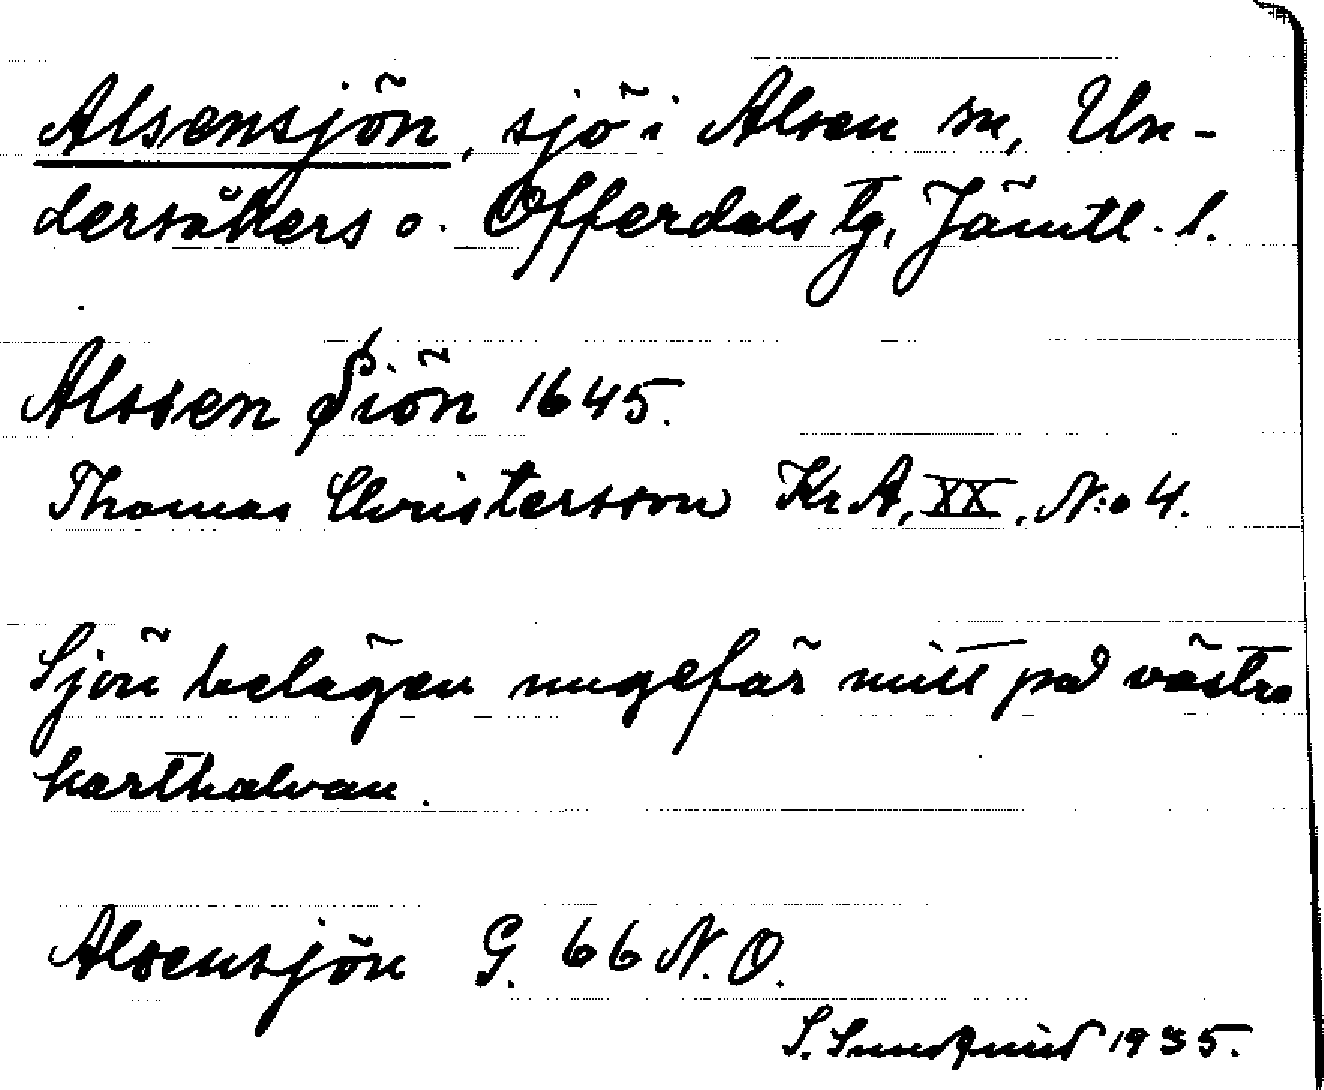 Alsensjön, sjö i Alsen sn, Un-
dersåkers o. Offerdals tg, Jämtl. l.
Alssen Siön 1645.
Thomas Christersson Kr A, XX, N:o 4.
Sjön belägen ungefär mitt på västra
karthalvan.
Alsensjön G. 66 N.O.
S. Sundqvist 1935.